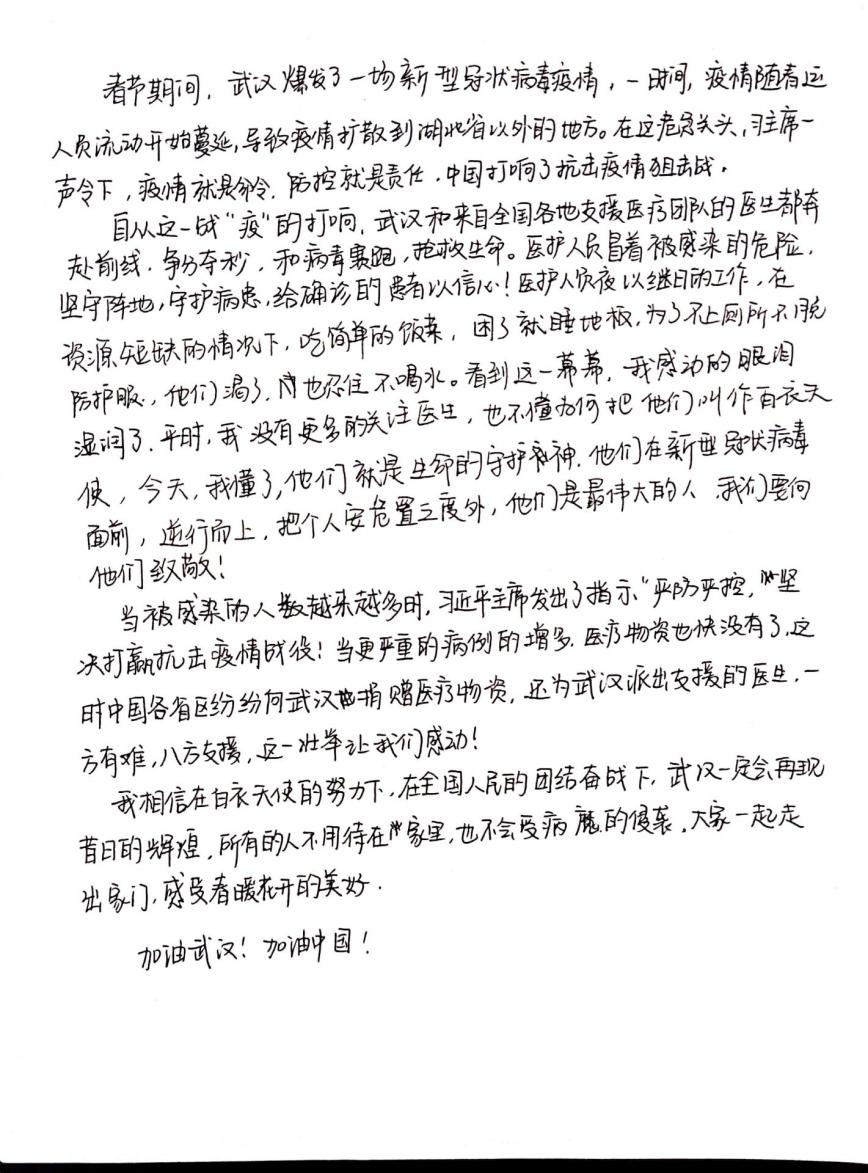 春节期间，武汉爆发了一场新型冠状病毒疫情，一时间，疫情随春运
人员流动开始蔓延，导致疫情扩散到湖北省以外的地方。在这危急关头，习主席一
声令下，疫情就是命令，防控就是责任，中国打响了抗击疫情狙击战。
自从这一战“疫”的打响，武汉和来自全国各地支援医疗团队的医生都奔
赴前线，争分夺秒，和病毒赛跑，抢救生命。医护人员冒着被感染的危险，
坚守阵地，守护病患，给确诊的患者以信心！医护人员夜以继日的工作，在
资源短缺的情况下，吃简单的饭菜，困了就睡地板，为了不上厕所不脱
防护服，他们渴了，也忍住不喝水。看到这一幕幕，我感动的眼泪
湿润了，平时，我没有更多的关注医生，也不懂为何把他们叫作白衣天
使，今天，我懂了，他们就是生命的守护神，他们在新型冠状病毒
面前，逆行而上，把个人安危置之度外，他们是最伟大的人，我们要向
他们致敬！
当被感染的人数越来越多时，习近平主席发出了指示“严防严控，”坚
决打赢抗击疫情战役！当更严重的病例的增多，医疗物资也快没有了，这
时中国各省区纷纷向武汉捐赠医疗物资，还为武汉派出支援的医生，一
方有难，八方支援，这一壮举让我们感动！
我相信在白衣天使的努力下，在全国人民的团结奋战下，武汉一定会再现
昔日的辉煌，所有的人不用待在家里，也不会受病魔的侵袭，大家一起走
出家门，感受春暖花开的美好.
加油武汉！加油中国！